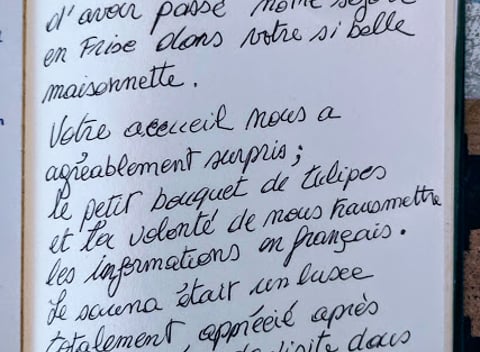 d'avoir passé notre séjour
en Frise dans votre si belle
maisonnette.
Votre accueil nous a
agréablement surpris;
le petit bouquet de tulipes
et la volonté de nous transmettre
les informations en français.
Le sauna était un luxe
totalement, apprécié après
visite dans